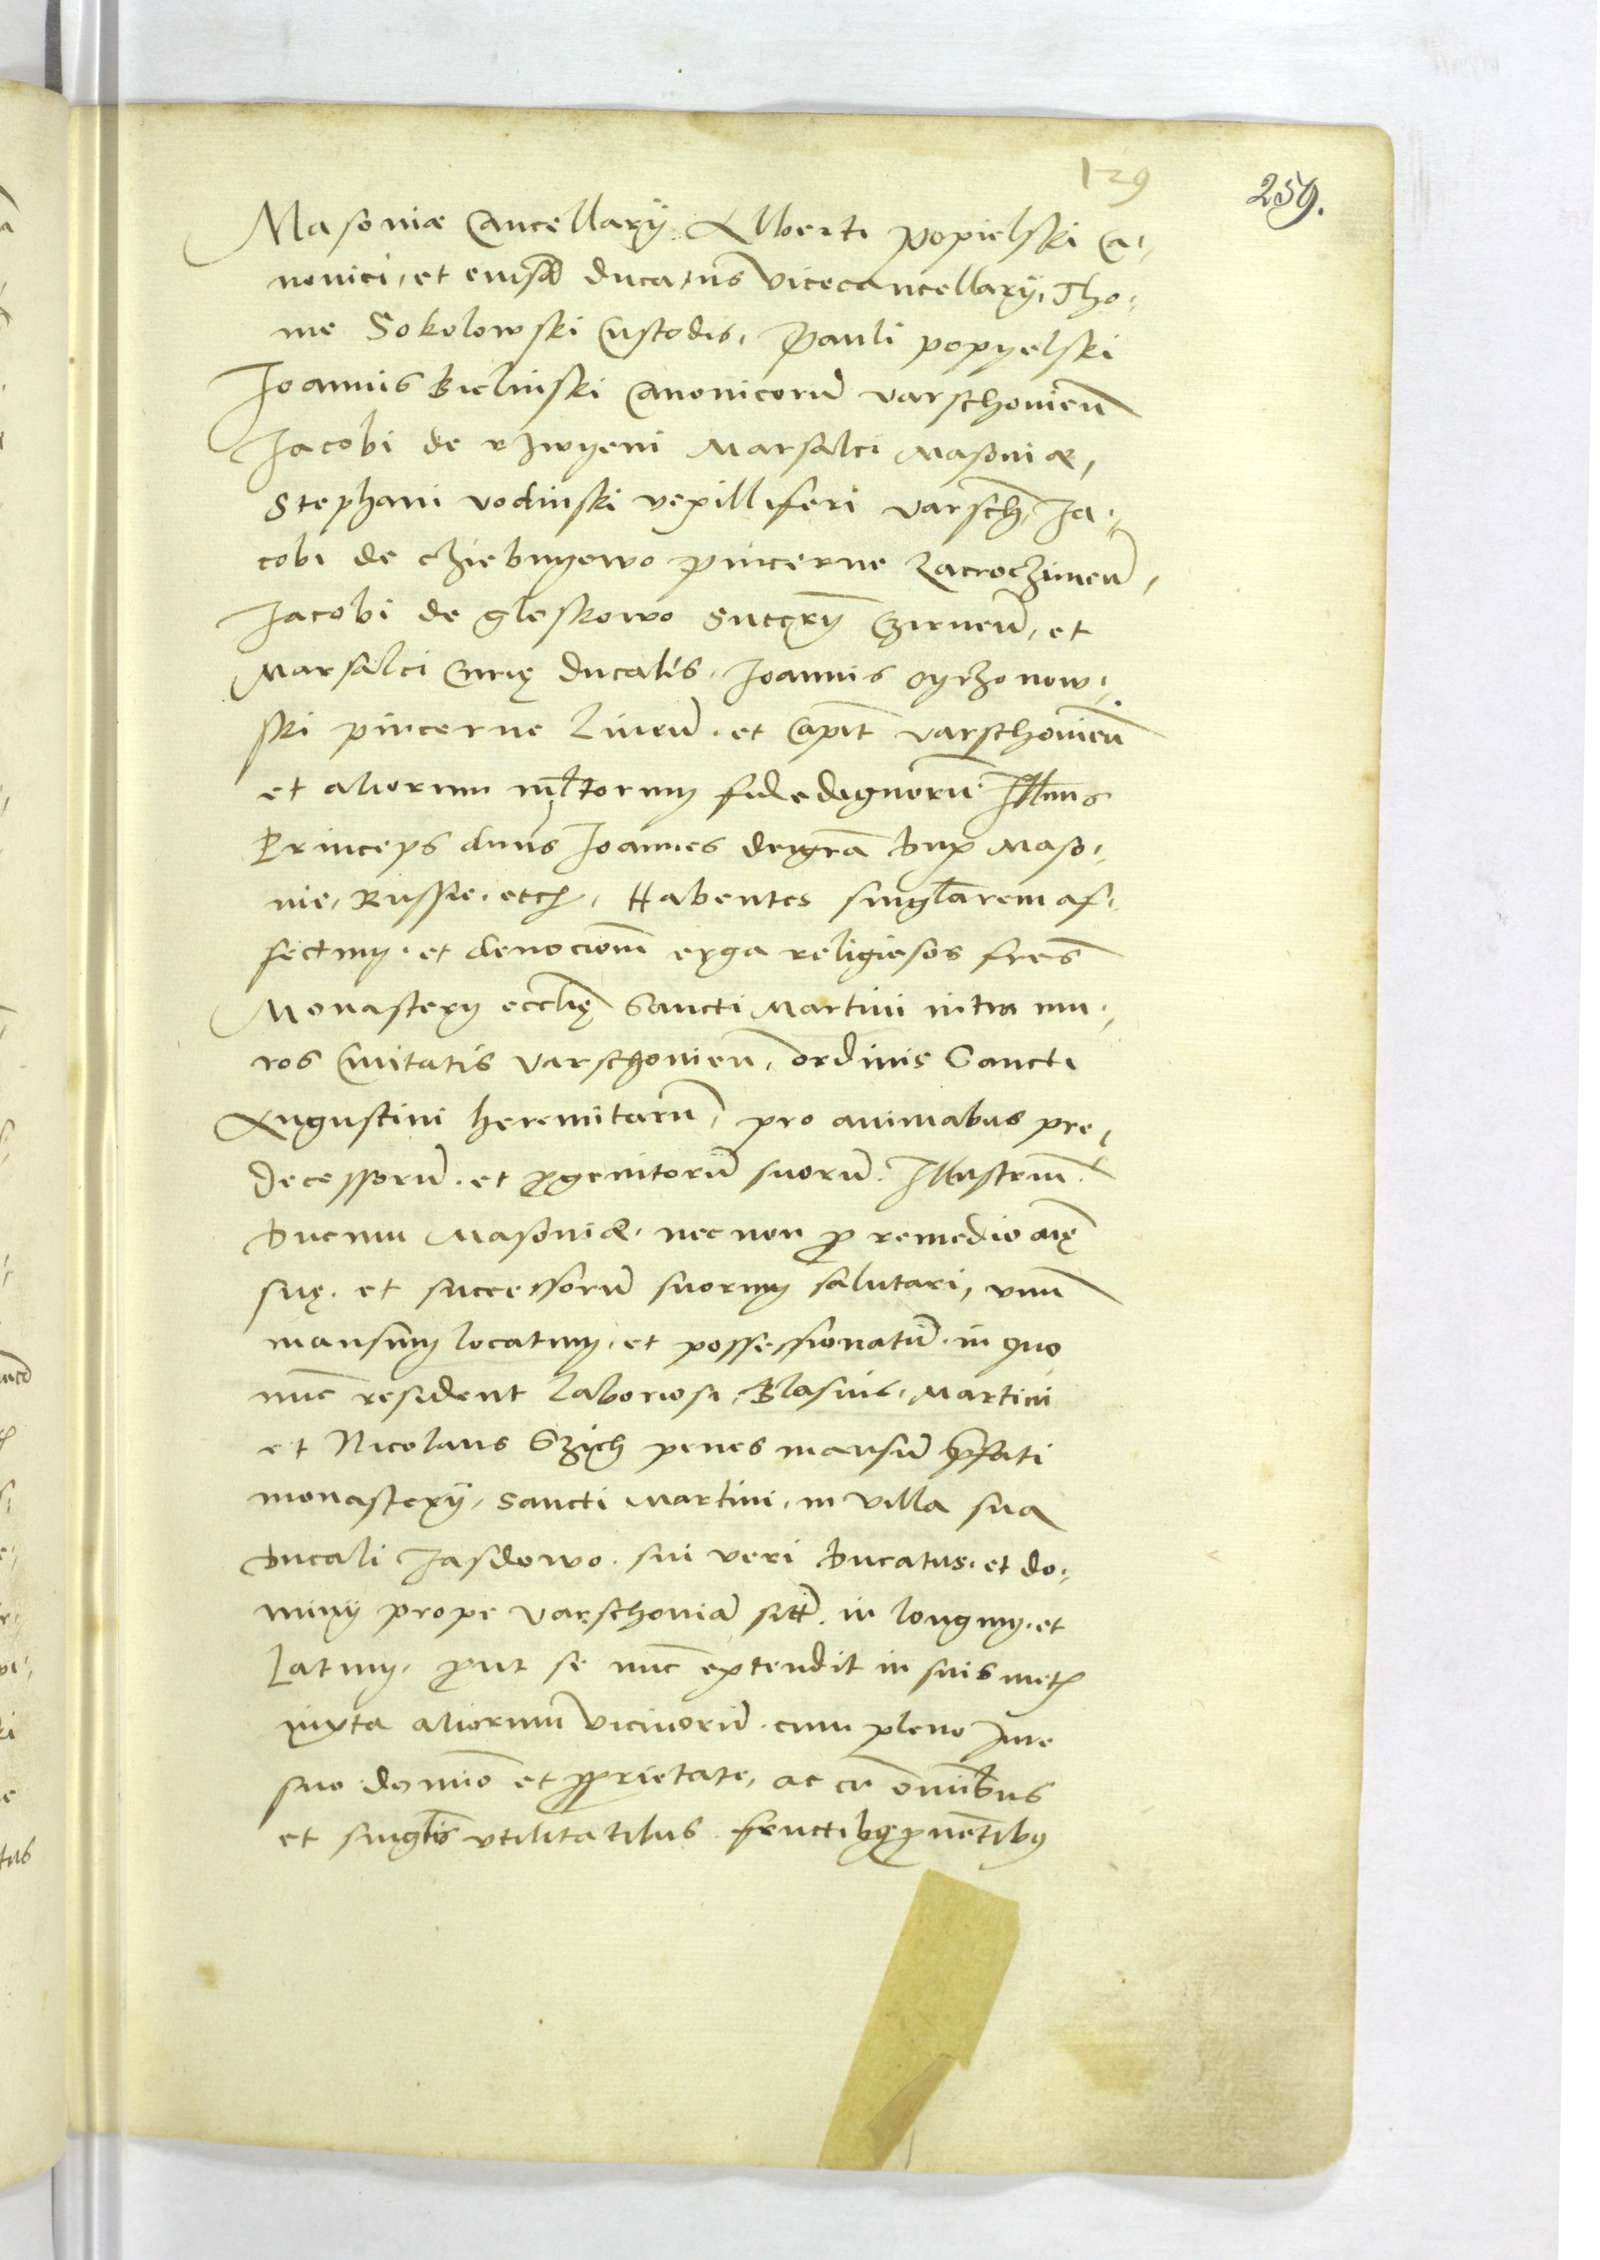 129
259.
Masoniæ Cancellarÿ. Alberti Popielski Ca-
nonici, et eiusd ducatus Vicecancellarÿ, Tho-
me Sokolowski Custodis, Pauli popyelski
Joannis Bielinski Canonicorū varschovieñ
Jacobi de Marsalci Masoniæ,
Stephani vodinski vexilliferi varsch, Ja-
cobi de pincerne Zacroczimeñ,
Jacobi de gloskowo Czirneñ, et
Marsalci Curię ducalis, Joannis Oyrzonow-
ski pincerne Liveñ. et Capit varschovieñ
et aliorum mltorum fidedignorū Illmus
Princeps dnus Joannes deigrã Dux Maso-
nie, Russie. etc, Habentes singlarem af-
fectum. et devocionē erga religiosos fres
Monastery ecclię Sancti Martini intra mu-
ros Civitatis varschovieñ, ordinis Sancti
Augustini heremitarū, pro animabus pre-
decessorū. et progenitorū suorū. Illustriū
Ducum Masoniæ. nec non p remedio aīę
suę. et successorū suorum salutari, vnū
mansum locatum. et possessionatū. in quo
nūc resident Laboriosi, Blasius, Martini
et Nicolaus Szich penes mansū pfati
monasterÿ, Sancti Martini, in villa sua
Ducali Jasdowo. sui veri Ducatus. et do-
minÿ prope varschoviā sitt. in longum. et
Latum, prout se nūc extendit in suis metis
iuxta aliorum vicinorū. cum pleno Jure
suo dominio et pprietate, ac cū omnibus
et singlis vtilitatibus. fructibus provētibus